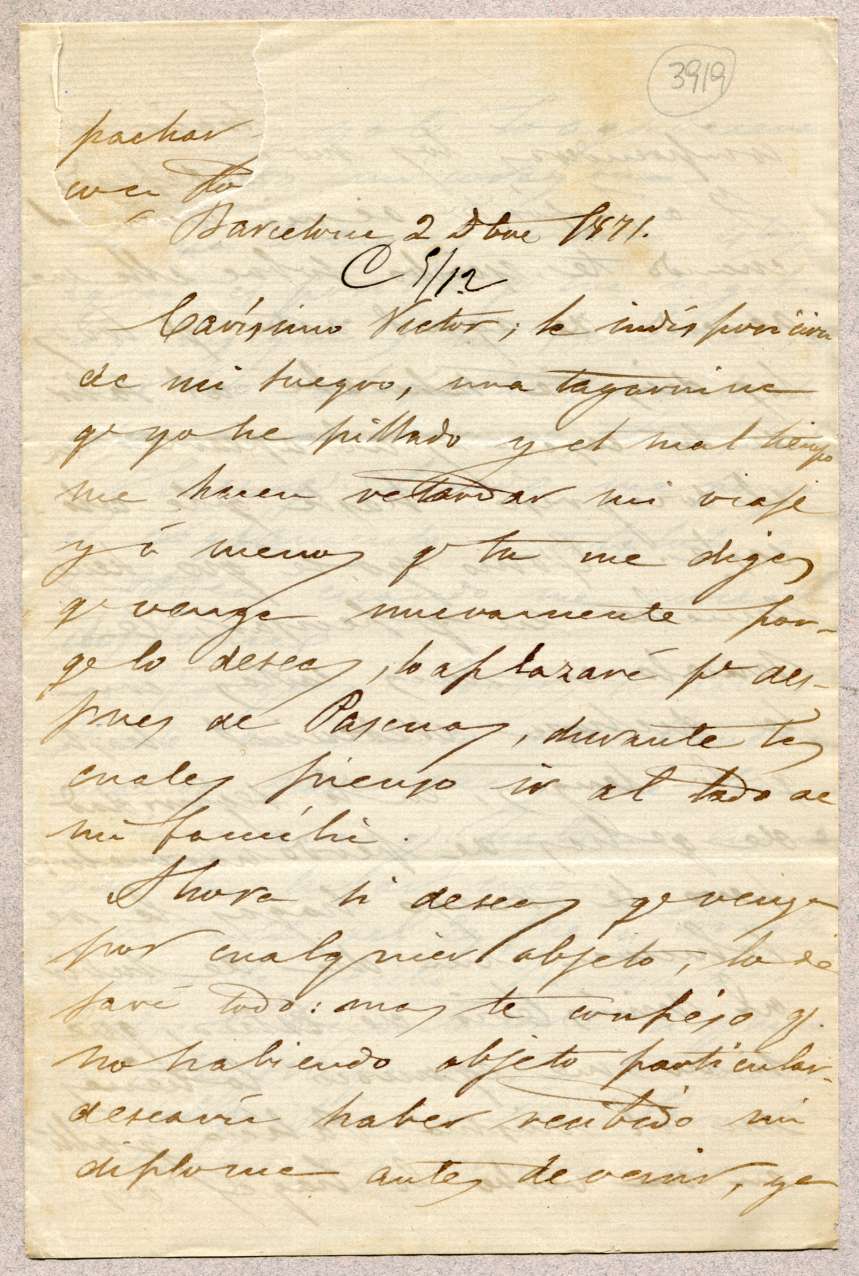 3919
pachar
Barcelona 2 Dbre 1871.
C 5/12
Carísimo Victor; la indisposicion
de mi suegro, una tagarnina
qe yo he pillado y el mal tiempo
me hacen retardar mi viaje
y á menos qe tu me digas
qe venga nuevamente por-
qe lo deseas, lo aplazaré pa des-
pues de Pascuas, durante las
cuales pienso ir al lado de
mi família.
Ahora si deseas qe venga
por cualquier objeto, lo de
jaré todo: mas te confieso q.
no habiendo objeto particular
desearia haber recibido mi
diploma antes de venir, ya